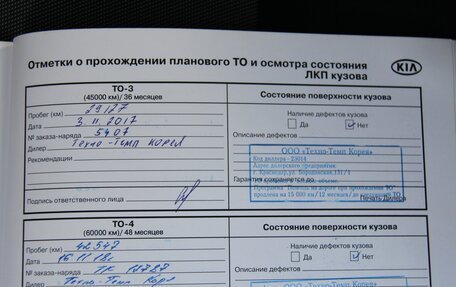 Отметки о прохождении планового ТО и осмотра состояния
ЛКП кузова
KIA
ТО-3
(45000 км)/ 36 месяцев
Состояние поверхности кузова
Пробег (км) 29127
Дата 3. 11. 2017
№ заказа-наряда 5407
Дилер Техно-Темп Корея
Рекомендации
Подпись ответственного лица
Наличие дефектов кузова
Да Нет
Описание дефектов
ООО «Техно-Темп Корея»
Код дилера - 23014
Адрес дилерского предприятия:
г. Краснодар, ул. Бородинская, 131/1
Гарантия сохраняется до
Программа "Помощь на дороге при прохождении ТО"
продлена на 15 000 км/12 месяцев/до следующего ТО
Печать Дилера
ТО-4
(60000 км)/ 48 месяцев
Состояние поверхности кузова
Пробег (км) 42548
Дата 16.11.18г.
№ заказа-наряда
Дилер Техно-Темп Корея
Наличие дефектов кузова
Да Нет
Описание дефектов